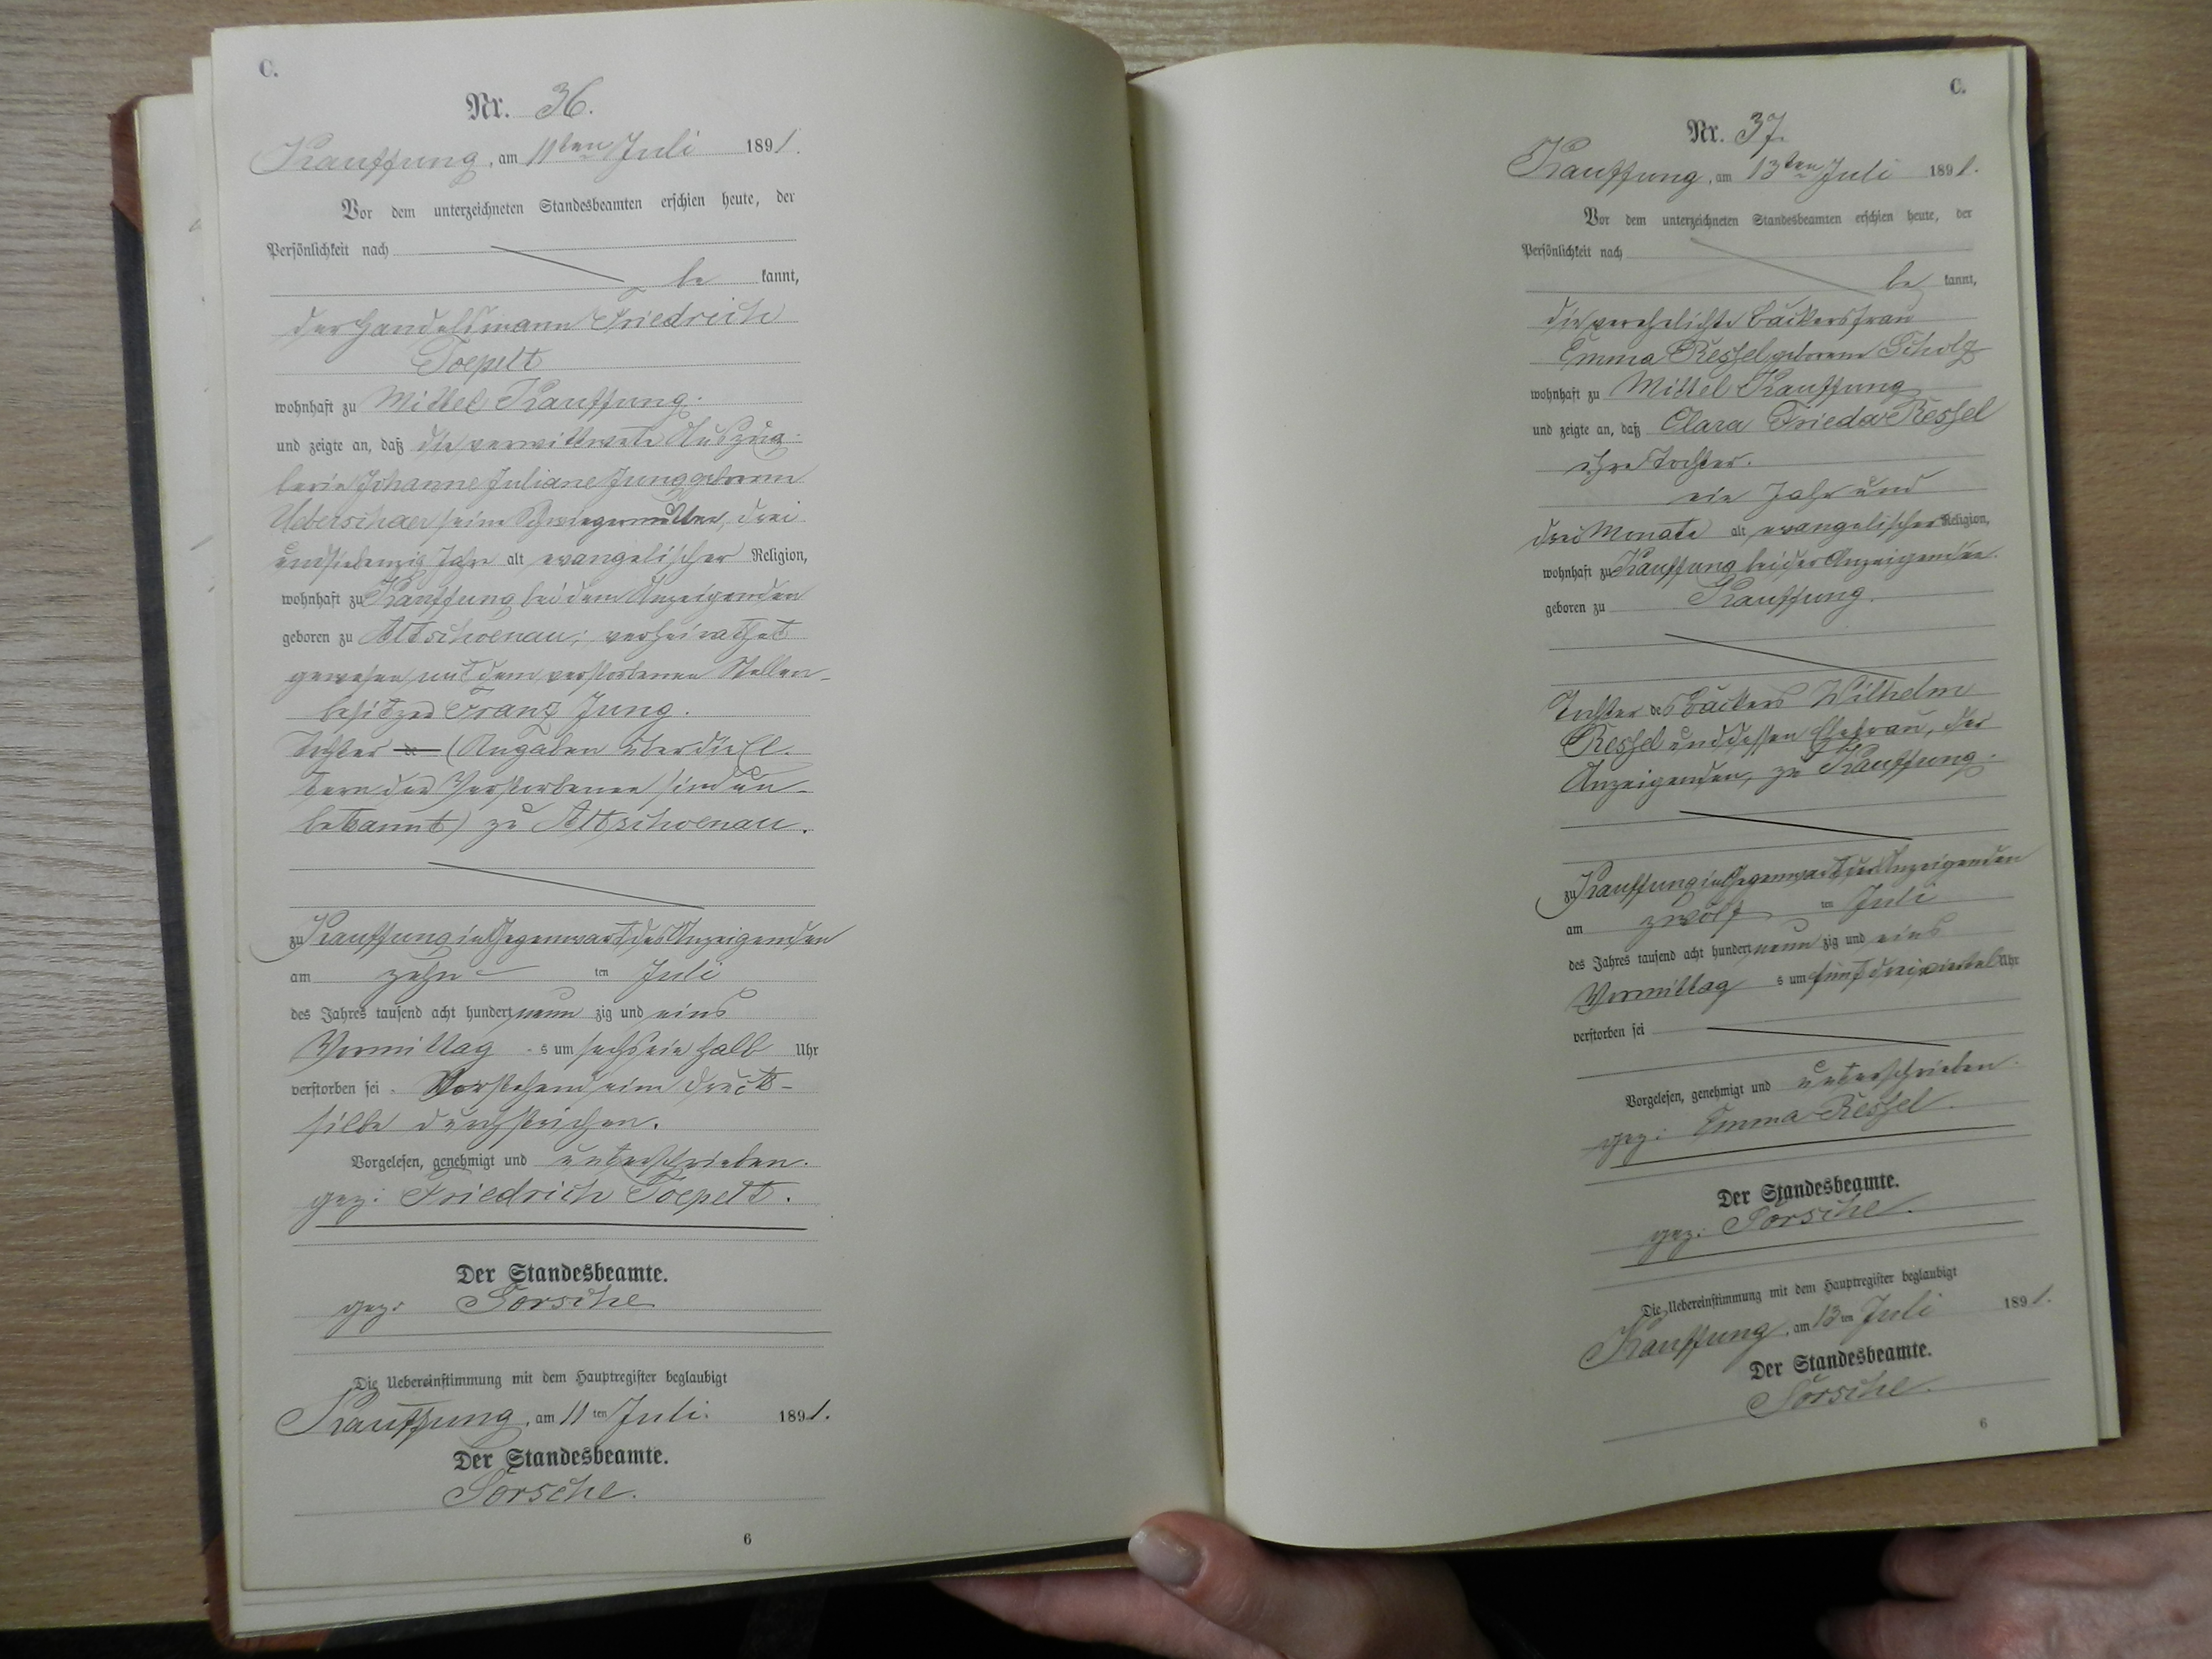 C.
Nr. 36.
Kauffung, am 11ten Juli 1891.
Vor dem unterzeichneten Standesbeamten erschien heute, der
Persönlichkeit nach
be kannt,
der Handelsmann Friedrich
Toepelt
wohnhaft zu Mittel Kauffung.
und zeigte an, daß die verwittwete Auszüg-
lerin Johanne Juliane Jung geborene
Ueberschaer seine Schwiegermutter, drei
undsiebenzig Jahre alt evangelischer Religion,
wohnhaft zu Kauffung bei dem Anzeigenden
geboren zu Altschoenau; verheirathet
gewesen mit dem verstorbenen Stellen-
besitzer Franz Jung.
Tochter de (Angaben über die El-
tern der Verstorbenen sind un-
bekannt) zu Altschoenau.
zu Kauffung in Gegenwart des Anzeigenden
am zehn ten Juli
des Jahres tausend acht hundert neun zig und eins
Vormittag s um sechs ein halb Uhr
verstorben sei. Vorstehend eine Druck-
silbe durchstrichen.
Vorgelesen, genehmigt und unterschrieben.
gez: Friedrich Toepelt.
Der Standesbeamte.
gez: Sorsche
Die Uebereinstimmung mit dem Hauptregister beglaubigt
Kauffung, am 11ten Juli. 1891.
Der Standesbeamte.
Sorsche.
6
C.
Nr. 37.
Kauffung, am 13ten Juli 1891.
Vor dem unterzeichneten Standesbeamten erschien heute, der
Persönlichkeit nach
be kannt,
die verehelichte Bäckersfrau
Emma Ressel geborene Scholz
wohnhaft zu Mittel Kauffung
und zeigte an, daß Clara Frieda Ressel
ihre Tochter.
ein Jahr und
drei Monate alt evangelischer Religion,
wohnhaft zu Kauffung bei der Anzeigenden.
geboren zu Kauffung.
Tochter des Bäckers Wilhelm
Ressel und dessen Ehefrau, der
Anzeigenden, zu Kauffung.
zu Kauffung in Gegenwart der Anzeigenden
am zwölf ten Juli
des Jahres tausend acht hundert neun zig und eins
Vormittag s um fünf dreiviertel Uhr
verstorben sei
Vorgelesen, genehmigt und unterschrieben.
gez: Emma Ressel.
Der Standesbeamte.
gez: Sorsche.
Die Uebereinstimmung mit dem Hauptregister beglaubigt
Kauffung, am 13ten Juli 1891.
Der Standesbeamte.
Sorsche.
6